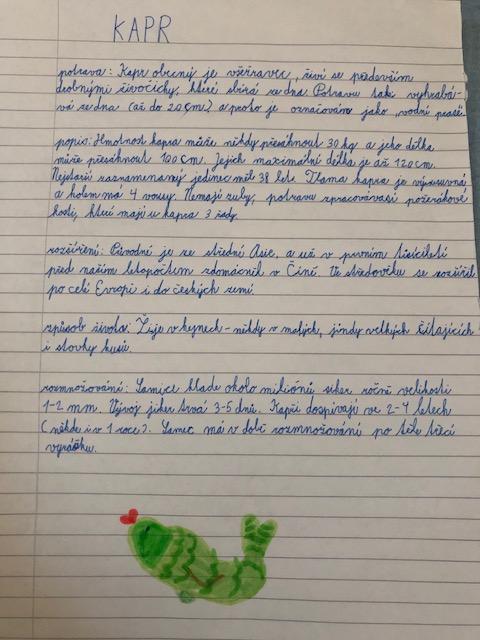 KAPR
potrava: Kapr obecný je všežravec, živí se především
drobnými živočichy, které sbírá ze dna. Potravu také vyhrabá-
vá ze dna (až do 20 cm) a proto je označován jako „vodní prase".
popis: Hmotnost kapra může někdy přesáhnout 30 kg a jeho délka
může přesáhnout 100 cm. Jejich maximální délka je až 120 cm.
Nejstarší zaznamenaný jedinec měl 38 let. Tlama kapra je vysunovná
a kolem má 4 vousy. Nemají zuby, potravu zpracovávají požerákové
kosti, které mají u kapra 3 řady.
rozšíření: Původně je ze střední Asie, a už v prvním tisíciletí
před naším letopočtem zdomácněl v Číně. Ve středověku se rozšířil
po celé Evropě i do českých zemí.
způsob života: Žije v hejnech - někdy v malých, jindy velkých čítajících
i stovky kusů.
rozmnožování: Samice klade okolo milionů jiker ročně velikosti
1-2 mm. Vývoj jiker trvá 3-5 dnů. Kapři dospívají ve 2-4 letech
(někde i v 1 roce). Samec má v době rozmnožování po těle třecí
vyrážku.